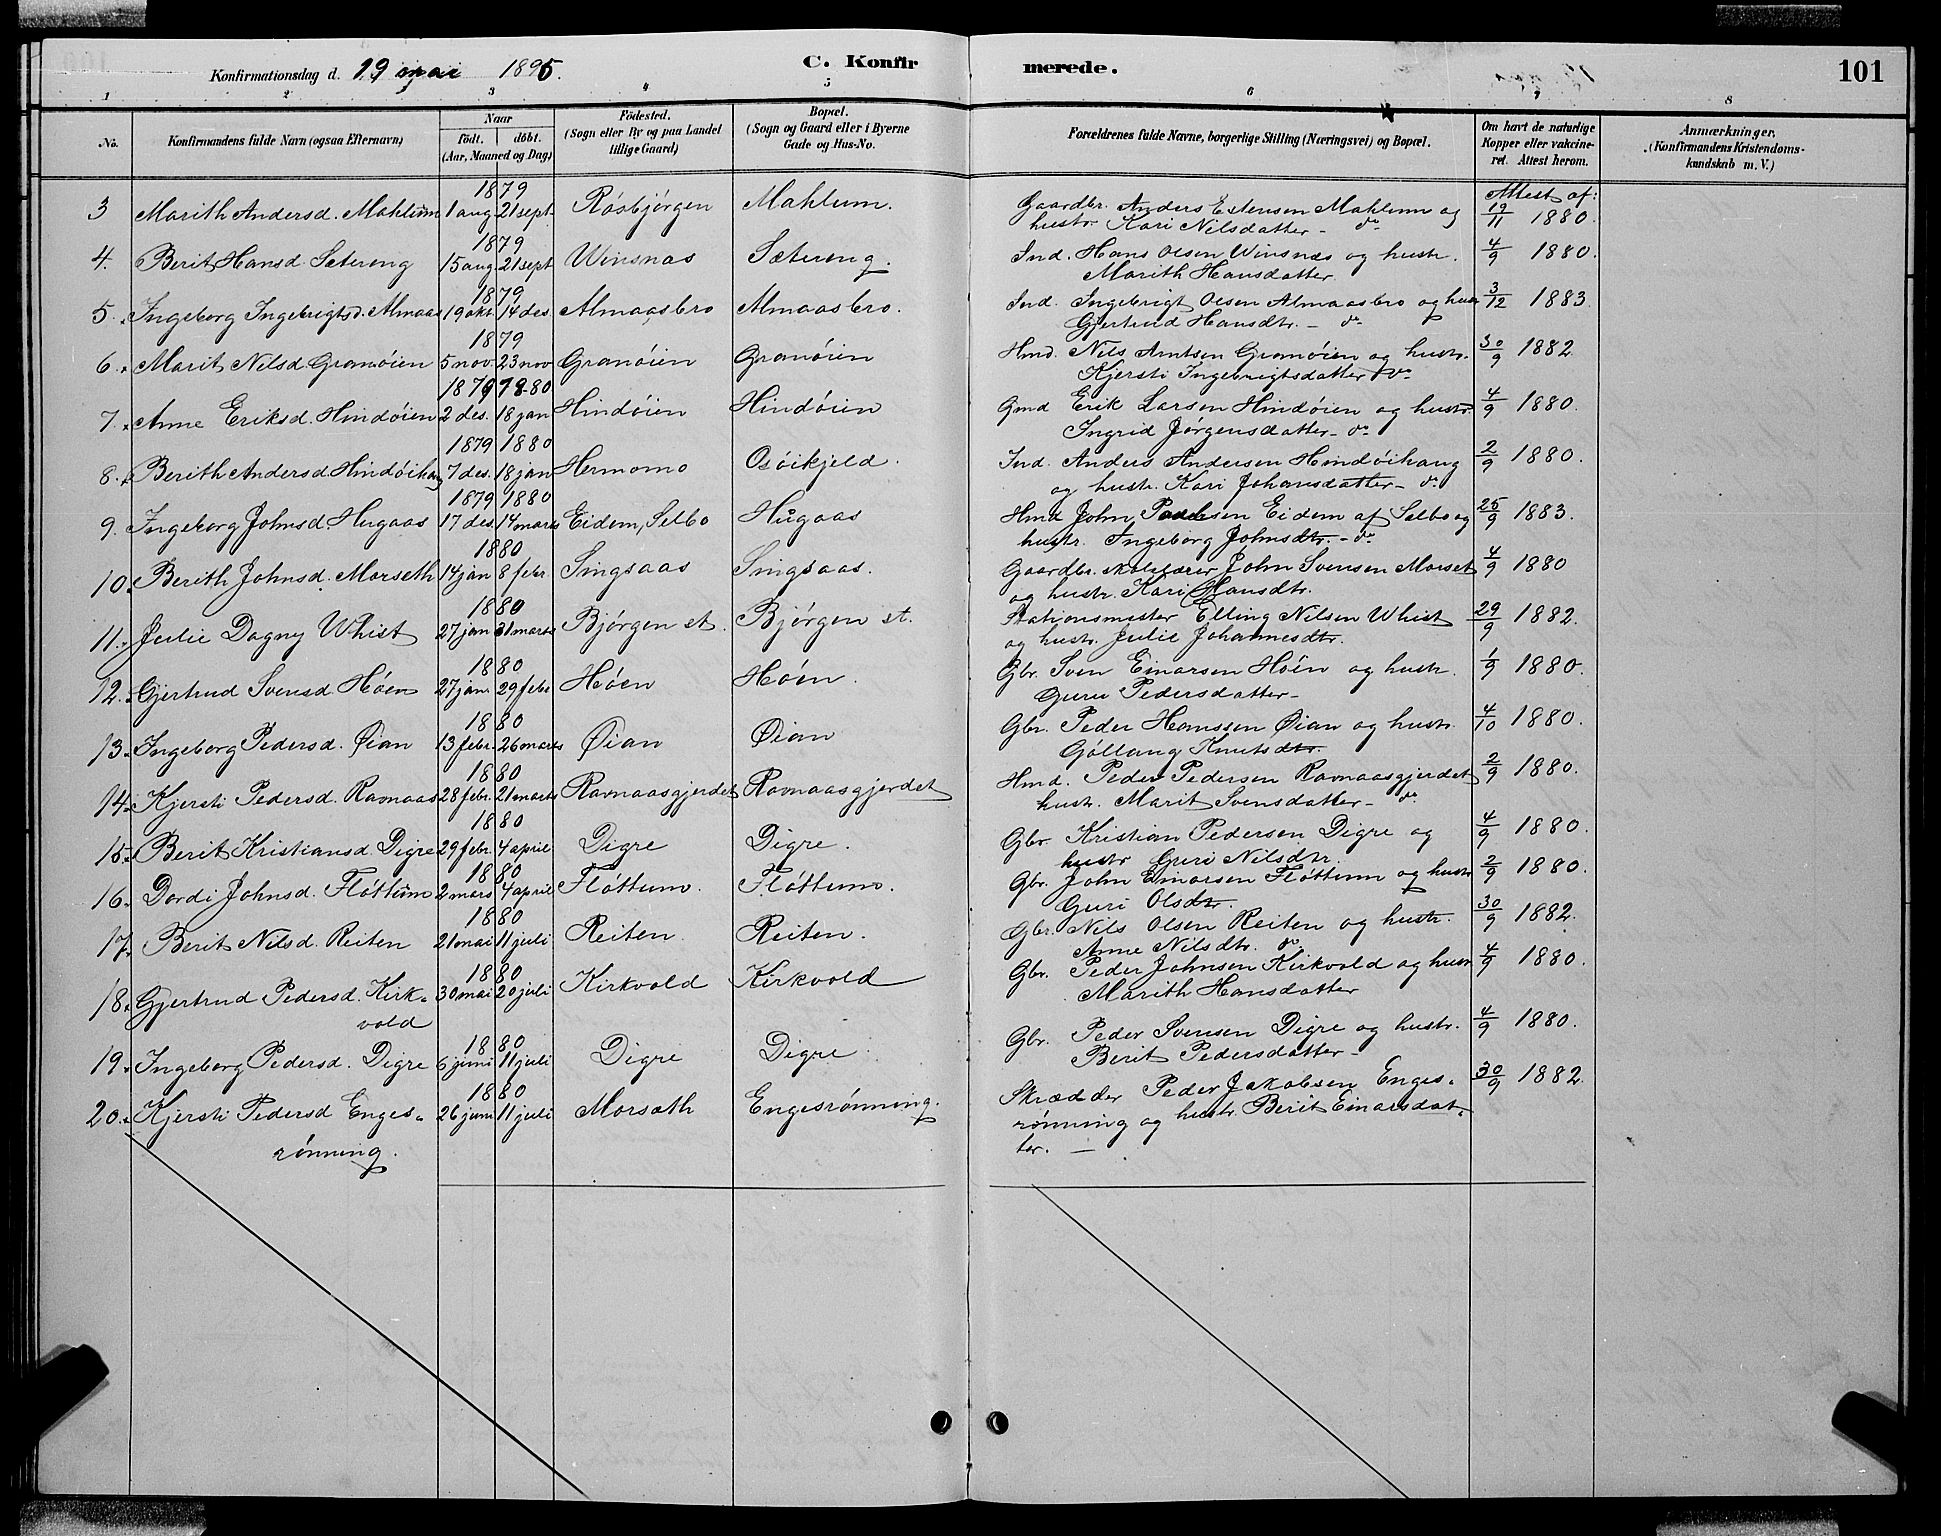 Konfirmationsdag d. 19 mai 1895. C. Konfirmerede. 101
1 2 3 4 5 6 7 8
No. Konfirmandens fulde Navn (ogsaa Efternavn) Naar födt. döbt. (Aar, Maaned og Dag) Födested. (Sogn eller By og paa Landet tillige Gaard) Bopæl. (Sogn og Gaard eller i Byerne Gade og Hus-No. Forældrenes fulde Navne, borgerlige Stilling (Næringsvei) og Bopæl. Om havt de naturlige Kopper eller vakcineret. Attest herom. Anmærkninger. (Konfirmandens Kristendomskundskab m. V.)
1879 Attest af:
3 Marith Andersd. Mahlum 1 aug. 21 sept. Rösbjörgen Mahlum. Gaardbr. Anders Estensen Mahlum og 19/11 1880.
hustr. Kari Nilsdatter - do
1879
4. Berit Hansd. Sætereng 15 aug. 21 sept Winsnas Sætereng. Ind. Hans Olsen Winsnæs og hustr. 4/9 1880.
Marith Hansdatter
1879
5. Ingeborg Ingebrigtsd. Almaas 19 okt. 14 des. Almaasbro Almaasbro. Ind. Ingebrigt Olsen Almaasbro og hustr 3/12 1883.
Gjertrud Hansdtr. - do
1879
6. Marit Nilsd. Granöien 5 nov. 23 nov Granöien Granöien Hmd. Nils Arntsen Granöien og hustr. 30/9 1882
Kjersti Ingebrigtsdatter do
1879 1880
7. Anne Eriksd. Hindöien 2 des. 18 jan Hindöien Hindöien Gmd Erik Larsen Hindöien og hustr. 4/9 1880.
Ingrid Jörgensdatter - do
1879 1880
8. Berith Andersd. Hindöihaug 7 des. 18 jan Hermomo Osöikjeld. Ind. Anders Andersen Hindöihaug 2/9 1880.
og hustr. Kari Johansdatter - do
1879 1880
9. Ingeborg Johnsd. Hugaas 17 des. 14 marts Eidem, Selbo Hugaas Hmd John Paulsen Eidem af Selbo og 25/9 1883.
hustr. Ingeborg Johnsdtr. - do
1880
10. Berith Johnsd. Morseth 14 jan 8 febr. Singsaas Singsaas. Gaardbr. skolelærer John Svensen Morset 4/9 1880
og hustr. Kari Hansdtr.
1880
11. Julie Dagny Whist 27 jan 31 marts Bjórgen st. Bjórgen st. Stationsmester Elling Nilsen Whist 29/9 1882.
og hustr. Julie Johannesdtr.
1880
12. Gjertrud Svensd. Höen 27 jan. 29 febr Höen Höen. Gbr. Sven Einarsen Höen og hustr. 1/9 1880.
Guru Pedersdatter -
1880
13. Ingeborg Pedersd. Øian 13 febr. 26 marts Øian Øian Gbr. Peder Hanssen Øian og hustr. 4/10 1880.
Göllaug Knutsdtr.
1880
14. Kjersti Pedersd. Ravnaas 28 febr. 21 marts Ravnaasgjerdet Ravnaasgjerdet Hmd. Peder Pedersen Ravnaasgjerdet 2/9 1880.
hustr. Marit Svensdatter - do
1880
15. Berit Kristiansd. Digre 29 febr. 4 april Digre Digre. Gbr. Kristian Pedersen Digre og 4/9 1880.
hustr Guri Nilsdtr.
1880
16. Dordi Johnsd. Flöttum 2 mars 4 april Flöttum. Flöttum. Gbr. John Einarsen Flöttum og hustr 2/9 1880.
Guri Olsdtr.
1880
17. Berit Nilsd. Reiten 21 mai 11 juli Reiten. Reiten. Gbr. Nils Olsen Reiten og hustr. 30/9 1882.
Anne Nilsdtr. do
1880
18. Gjertrud Pedersd. Kirk- 30 mai 20 juli Kirkvold Kirkvold Gbr. Peder Johnsen Kirkvold og hustr 4/9 1880.
vold Marith Hansdatter
1880
19. Ingeborg Pedersd. Digre 6 juni 11 juli Digre Digre Gbr. Peder Svensen Digre og hustr. 4/9 1880.
Berit Pedersdatter -
1880
20. Kjersti Pedersd Enges- 26 juni 11 juli Morsæth Engesrönning. Skrædder Peder Jakobsen Enges- 30/9 1882.
rönning. rönning og hustr. Berit Einarsdat-
ter. -